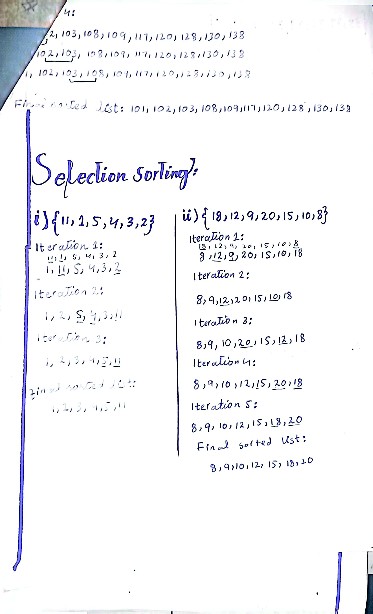 4:
2, 103, 108, 109, 117, 120, 128, 130, 138
102, 103, 108, 109, 117, 120, 128, 130, 138
, 102, 103, 108, 109, 117, 120, 128, 130, 138
Final sorted list: 101, 102, 103, 108, 109, 117, 120, 128, 130, 138
Selection Sorting:
i) {11, 1, 5, 4, 3, 2}
Iteration 1:
11, 1, 5, 4, 3, 2
1, 11, 5, 4, 3, 2
Iteration 2:
1, 2, 5, 4, 3, 11
Iteration 3:
1, 2, 3, 4, 5, 11
Final sorted list:
1, 2, 3, 4, 5, 11
ii) {18, 12, 9, 20, 15, 10, 8}
Iteration 1:
18, 12, 9, 20, 15, 10, 8
8, 12, 9, 20, 15, 10, 18
Iteration 2:
8, 9, 12, 20, 15, 10, 18
Iteration 3:
8, 9, 10, 20, 15, 12, 18
Iteration 4:
8, 9, 10, 12, 15, 20, 18
Iteration 5:
8, 9, 10, 12, 15, 18, 20
Final sorted list:
8, 9, 10, 12, 15, 18, 20